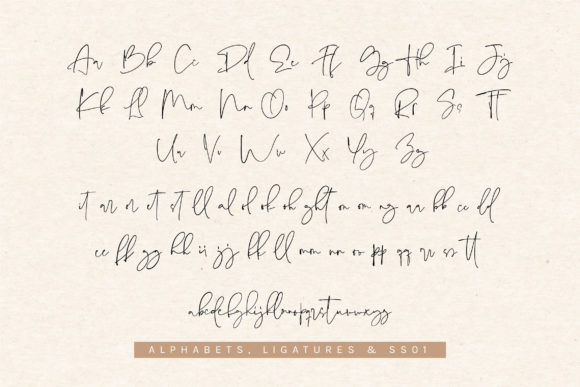 Aa Bb Cc Dd Ee Ff Gg Hh Ii Jj
Kk Ll Mm Nn Oo Pp Qq Rr Ss Tt
Uu Vv Ww Xx Yy Zz
it ar or et st ll al ol ok oh ght on om ng aa bb cc dd
ee ff gg hh ii jj kk ll mm nn oo pp qq rr ss tt
abcdefghijklmnopqrstuvwxyz
ALPHABETS, LIGATURES & SS01